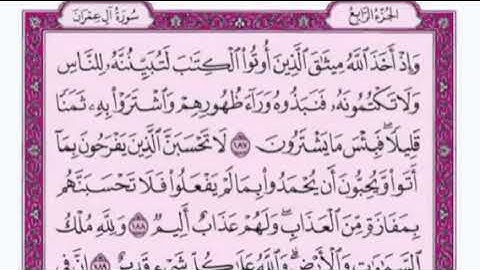 الجزء الرابع
سورة آل عمران
وَإِذْ أَخَذَ ٱللَّهُ مِيثَٰقَ ٱلَّذِينَ أُوتُوا۟ ٱلْكِتَٰبَ لَتُبَيِّنُنَّهُۥ لِلنَّاسِ
وَلَا تَكْتُمُونَهُۥ فَنَبَذُوهُ وَرَآءَ ظُهُورِهِمْ وَٱشْتَرَوْا۟ بِهِۦ ثَمَنًا
قَلِيلًا ۖ فَبِئْسَ مَا يَشْتَرُونَ ١٨٧ لَا تَحْسَبَنَّ ٱلَّذِينَ يَفْرَحُونَ بِمَآ
أَتَوا۟ وَّيُحِبُّونَ أَن يُحْمَدُوا۟ بِمَا لَمْ يَفْعَلُوا۟ فَلَا تَحْسَبَنَّهُم
بِمَفَازَةٍ مِّنَ ٱلْعَذَابِ ۖ وَلَهُمْ عَذَابٌ أَلِيمٌ ١٨٨ وَلِلَّهِ مُلْكُ
ٱلسَّمَٰوَٰتِ وَٱلْأَرْضِ ۗ وَٱللَّهُ عَلَىٰ كُلِّ شَىْءٍ قَدِيرٌ ١٨٩ إِنَّ فِى